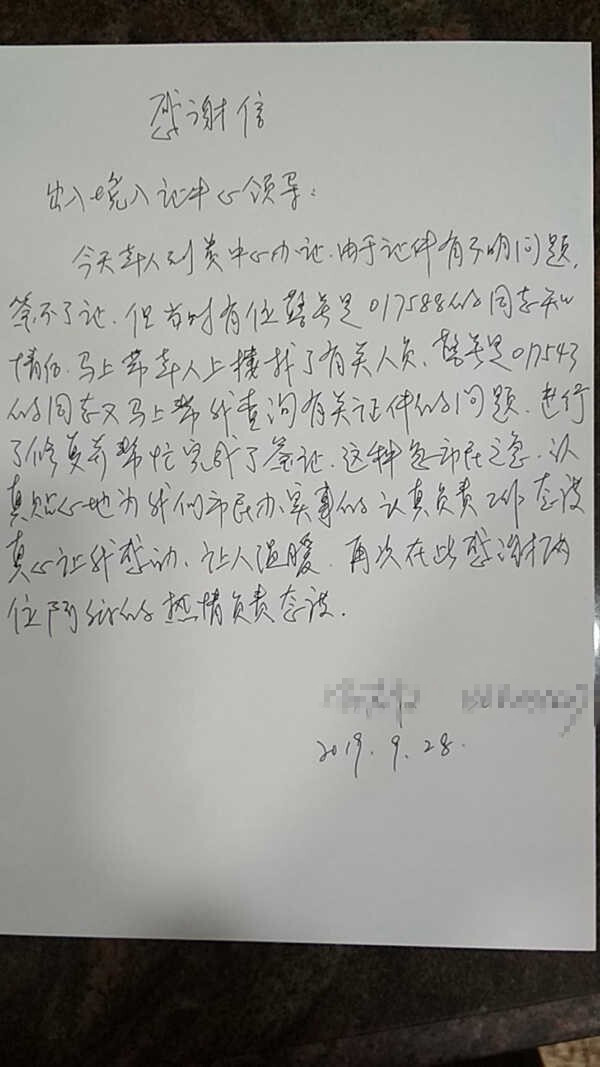 感谢信
出入境入证中心领导:
今天本人到贵中心办证.由于证件有不明问题,
签不了证.但当时有位警号是017588的同志知
情后.马上带本人上楼找了有关人员、警号是017543
的同志又马上帮我查询有关证件的问题.进行
了修复并帮忙完成了签证.这种急市民之急.认
真贴心地为我们市民办实事的认真负责工作态度
真心让我感动、让人温暖.再次在此感谢
位的热情负责态度.
2019.9.28.